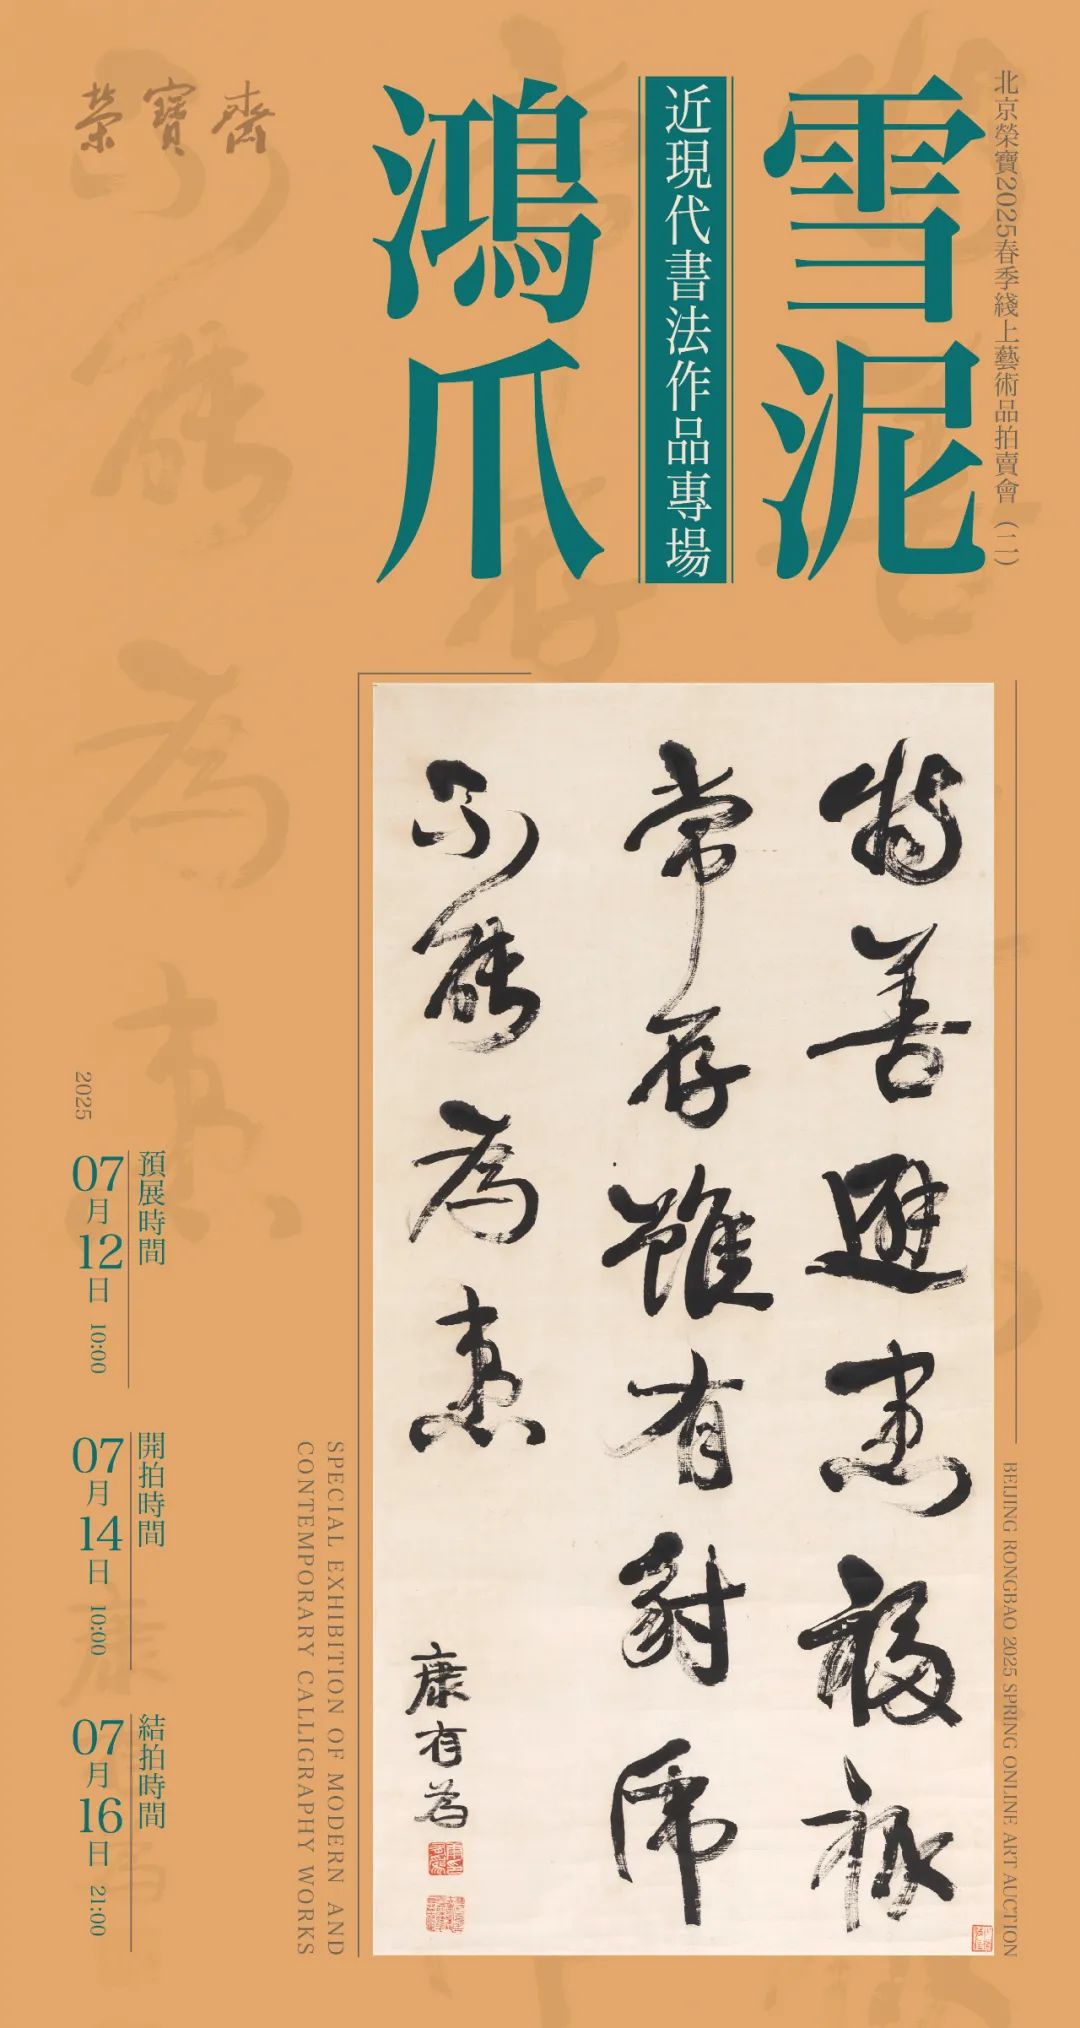 北京榮寶2025春季綫上藝術品拍賣會（二）
雪泥
近現代書法作品專場
鴻爪
榮寶齋
持善避惡福祿
常存雖有豺虎
不能為患
康有為
BEIJING RONGBAO 2025 SPRING ONLINE ART AUCTION
SPECIAL EXHIBITION OF MODERN AND
CONTEMPORARY CALLIGRAPHY WORKS
2025
預展時間
07月12日 10:00
開拍時間
07月14日 10:00
結拍時間
07月16日 21:00